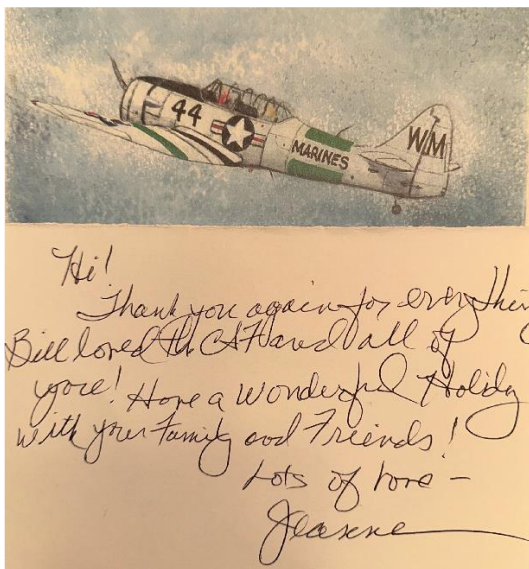 44
MARINES
WM
Hi!
Thank you again for everything
Bill loved the CAF and all of
you! Have a Wonderful Holidy
with your Family and Friends!
Lots of love -
Jeanne